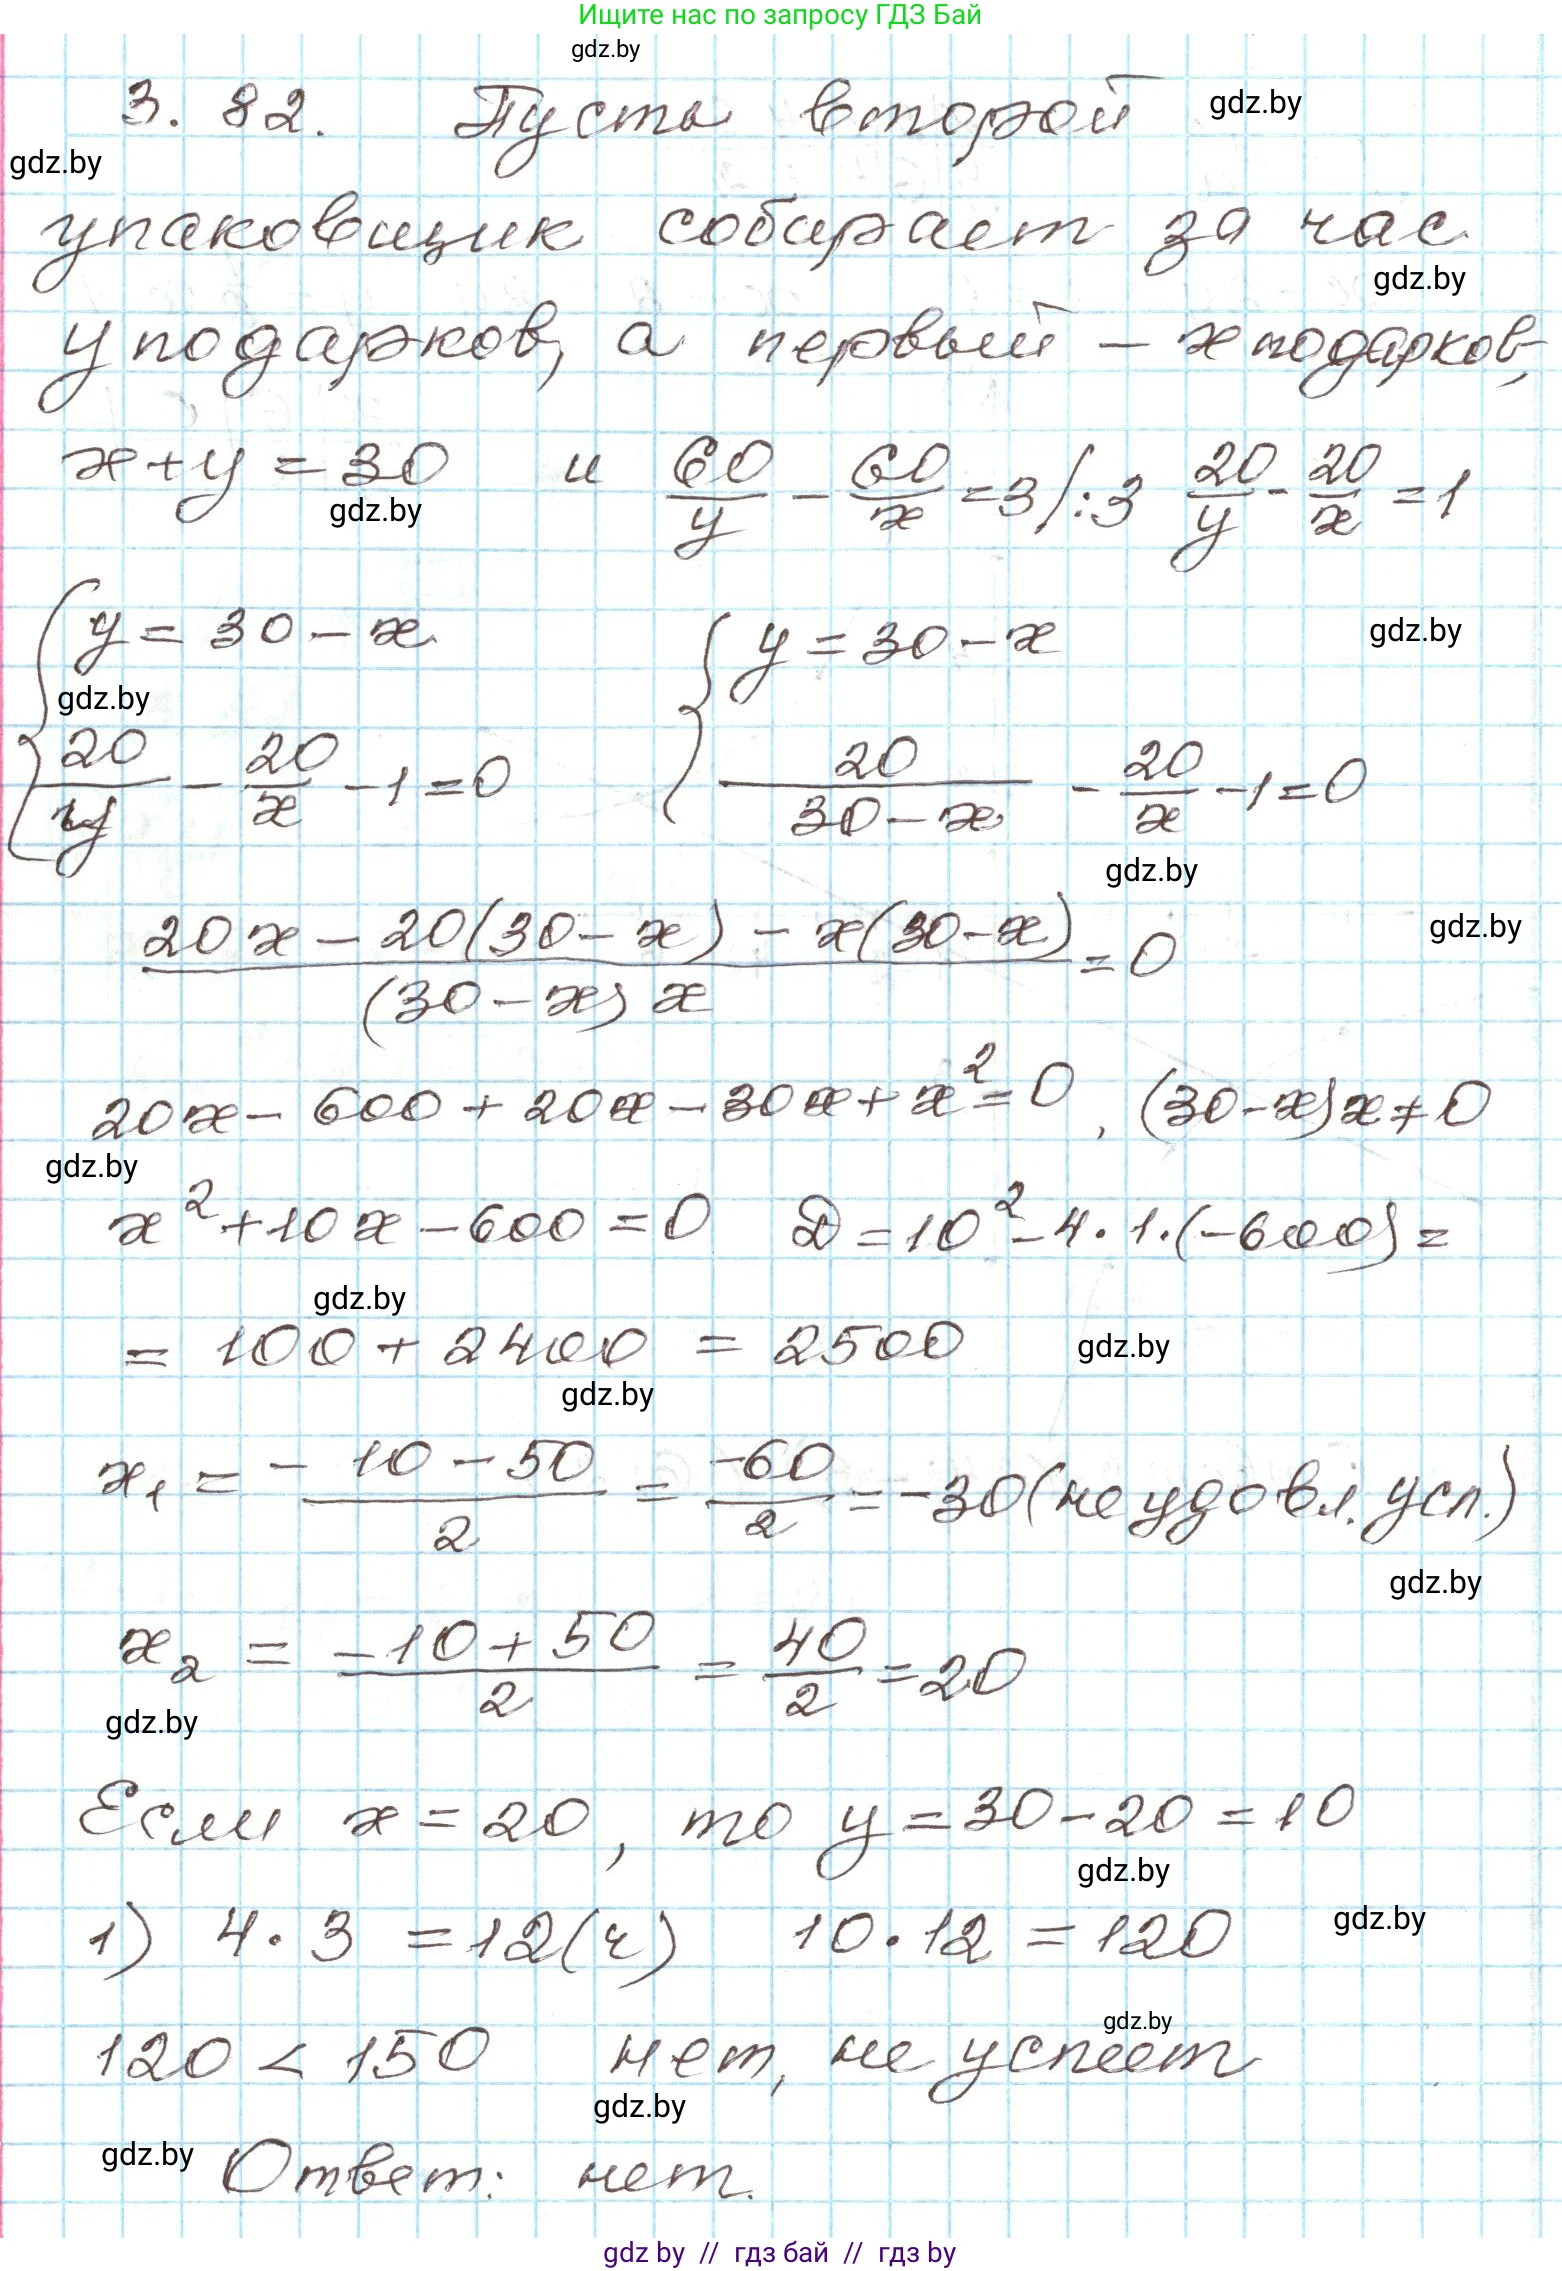 Ищите нас по запросу ГДЗ Бай
gdz.by
3. 82. Пусть второй gdz.by
gdz.by
упаковщик собирает за час
gdz.by
y подарков, а первый – x подарков,
x + y = 30 и 60/y - 60/x = 3 |:3 20/y - 20/x = 1
gdz.by
{ y = 30 - x { y = 30 - x gdz.by
gdz.by
20/y - 20/x - 1 = 0 20/(30 - x) - 20/x - 1 = 0
gdz.by
(20x - 20(30 - x) - x(30 - x))/((30 - x) x) = 0 gdz.by
20x - 600 + 20x - 30x + x² = 0, (30 - x)x ≠ 0
gdz.by
x² + 10x - 600 = 0 D = 10² - 4 · 1 · (-600) =
gdz.by
= 100 + 2400 = 2500 gdz.by
gdz.by
x₁ = (-10 - 50)/2 = -60/2 = -30 (не удовл. усл.)
gdz.by
x₂ = (-10 + 50)/2 = 40/2 = 20
gdz.by
Если x = 20, то y = 30 - 20 = 10
gdz.by
1) 4 · 3 = 12 (ч) 10 · 12 = 120 gdz.by
gdz.by
120 < 150 нет, не успеет
gdz.by
gdz.by Ответ: нет.
gdz by // гдз бай // гдз by